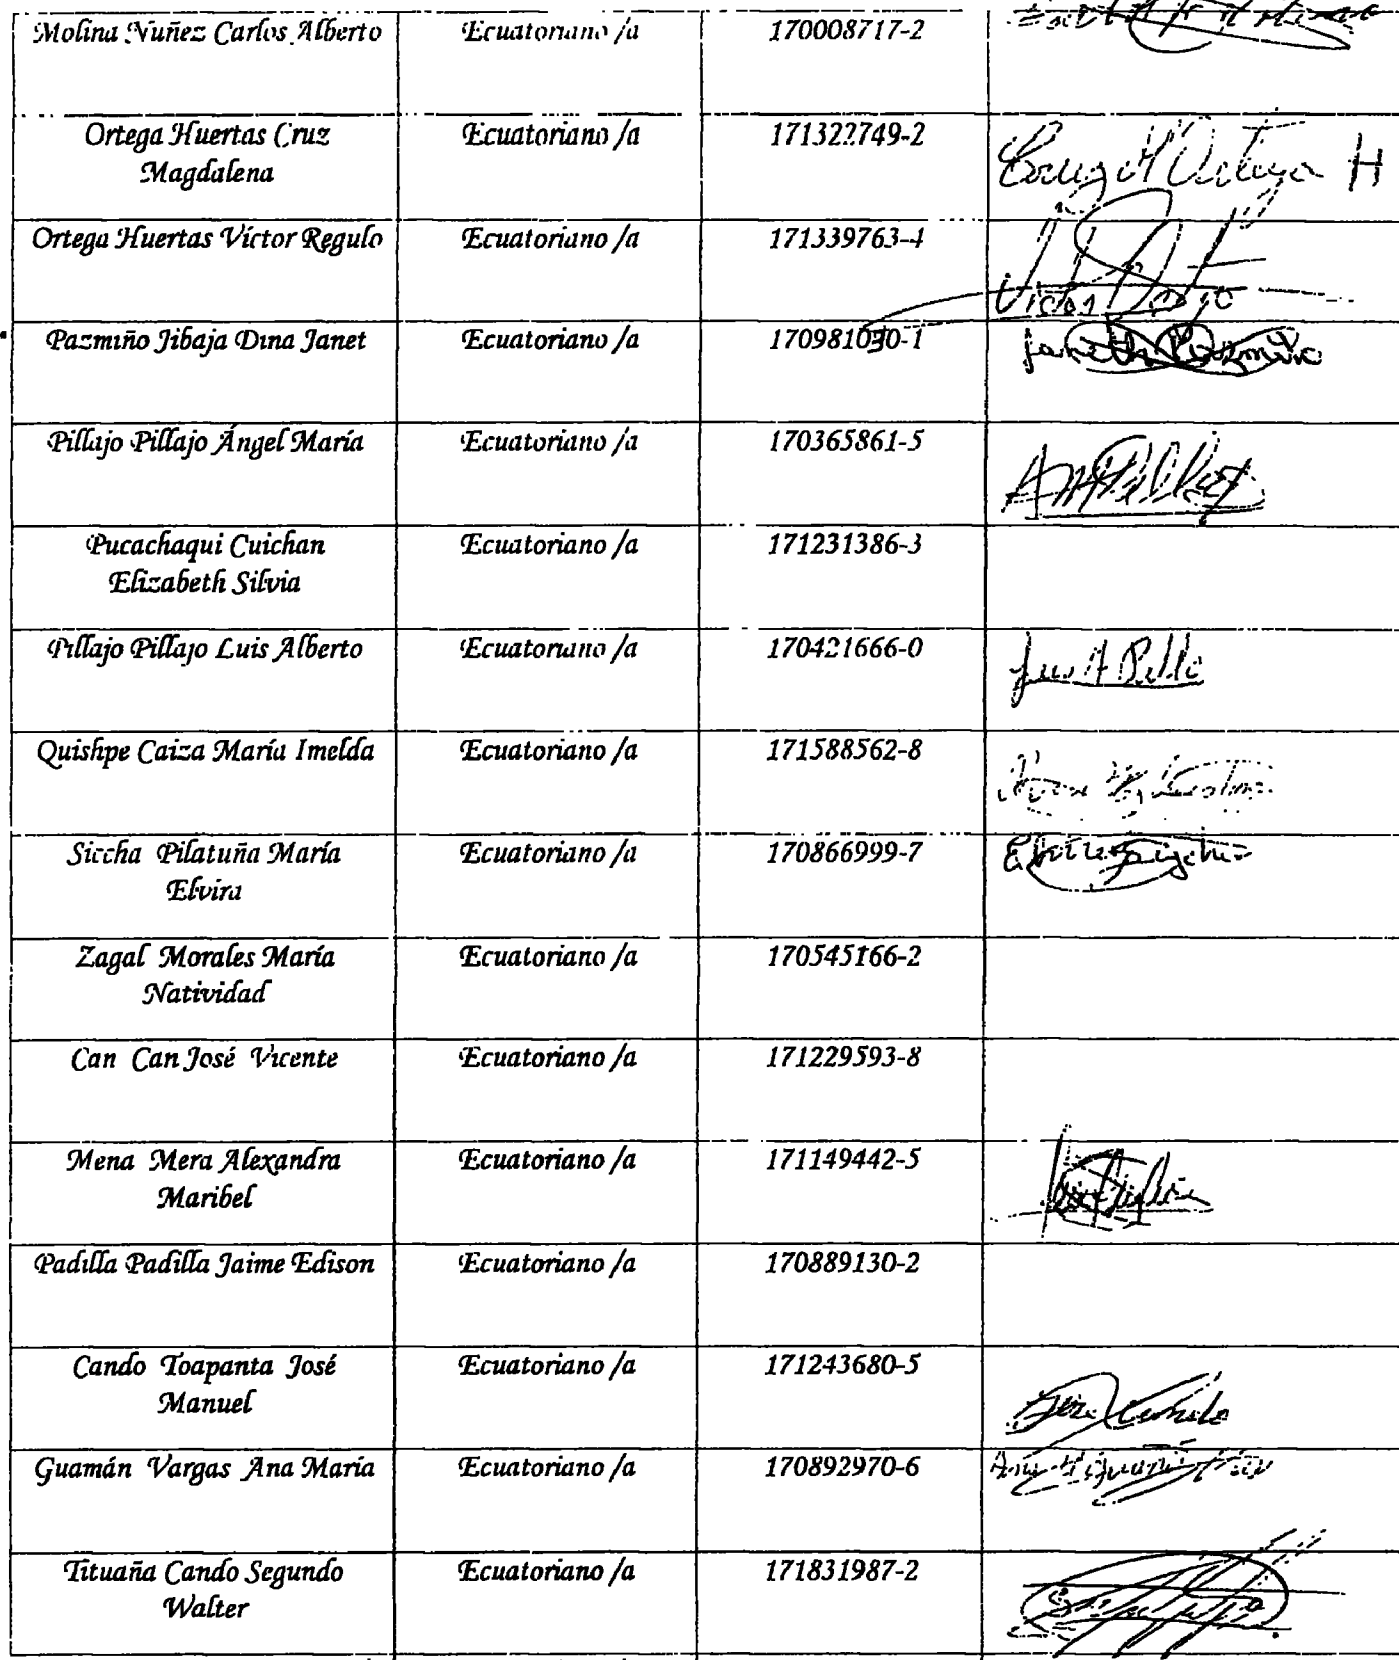 Molina Nuñez Carlos Alberto Ecuatoriano /a 170008717-2
Ortega Huertas Cruz Ecuatoriano /a 171322749-2
Magdalena
Cruz M Ortega H
Ortega Huertas Víctor Regulo Ecuatoriano /a 171339763-4
Victor
Pazmiño Jibaja Dina Janet Ecuatoriano /a 1709810-1
Janeth Pazmiño
Pillajo Pillajo Ángel María Ecuatoriano /a 170365861-5
Pucachaqui Cuichan Ecuatoriano /a 171231386-3
Elizabeth Silvia
Pillajo Pillajo Luis Alberto Ecuatoriano /a 170421666-0
Quishpe Caiza María Imelda Ecuatoriano /a 171588562-8
Siccha Pilatuña María Ecuatoriano /a 170866999-7
Elvira
Zagal Morales María Ecuatoriano /a 170545166-2
Natividad
Can Can José Vicente Ecuatoriano /a 171229593-8
Mena Mera Alexandra Ecuatoriano /a 171149442-5
Maribel
Padilla Padilla Jaime Edison Ecuatoriano /a 170889130-2
Cando Toapanta José Ecuatoriano /a 171243680-5
Manuel
Guamán Vargas Ana María Ecuatoriano /a 170892970-6
Tituaña Cando Segundo Ecuatoriano /a 171831987-2
Walter